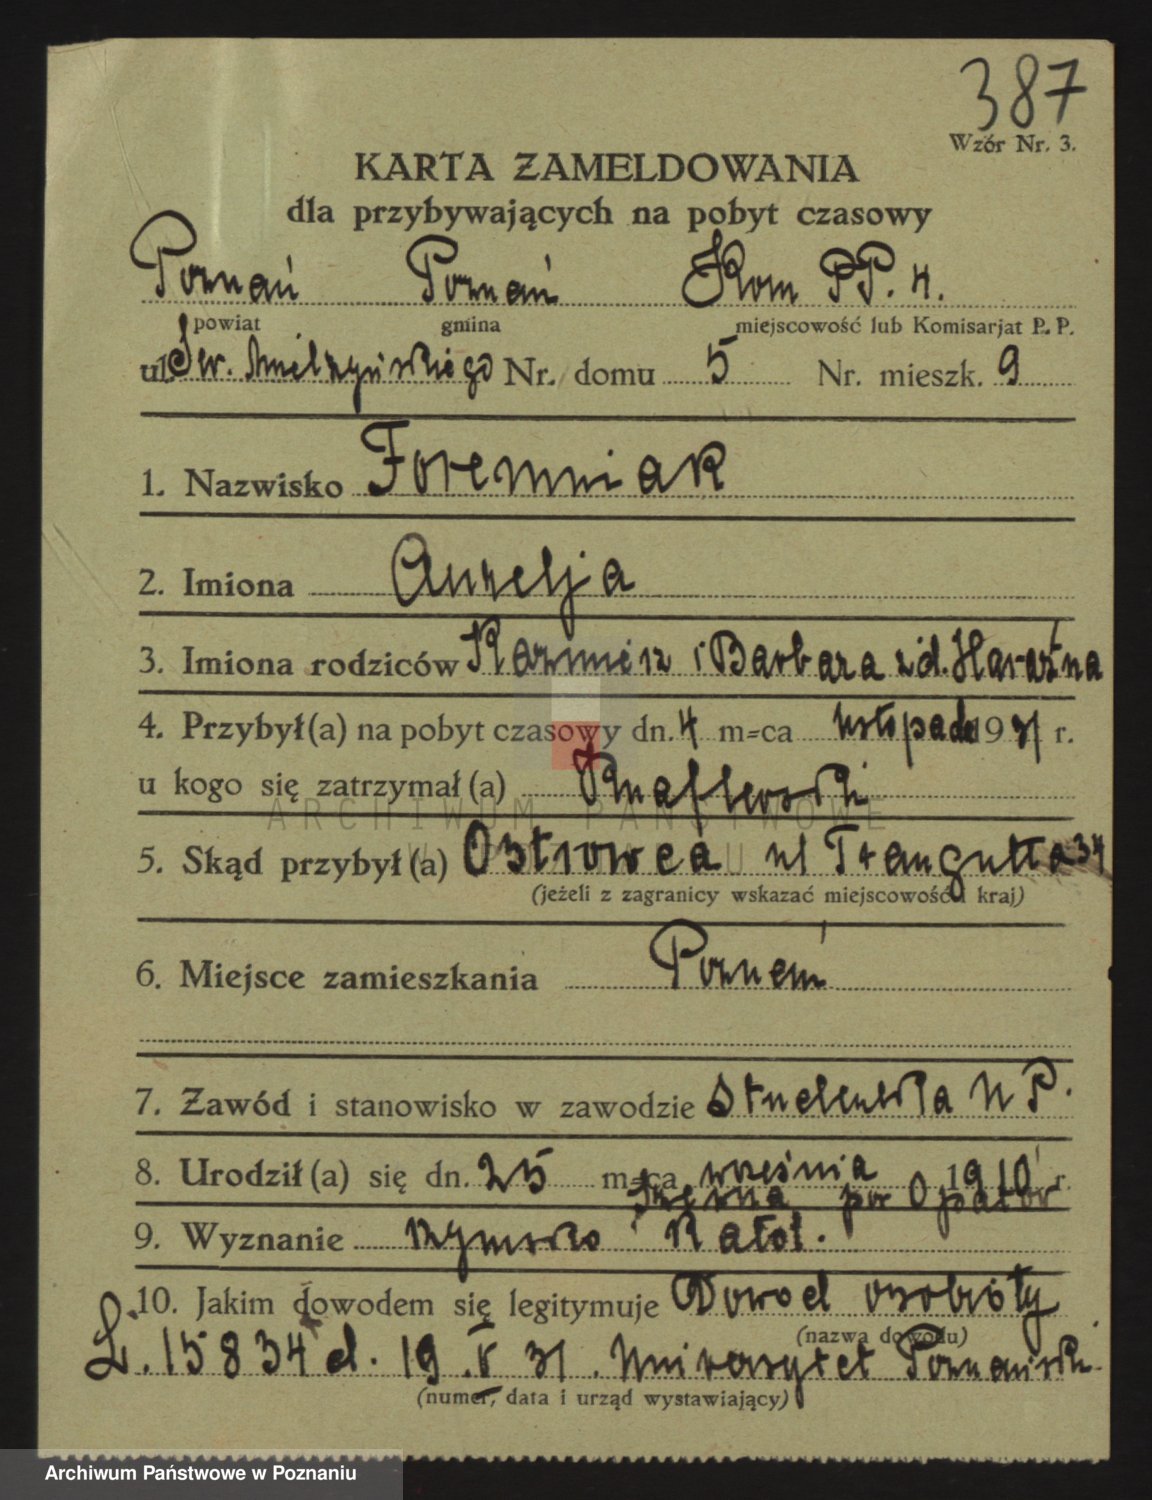 387
Wzór Nr. 3.
KARTA ZAMELDOWANIA
dla przybywających na pobyt czasowy
Poznań Poznań Kom PP. 4.
powiat gmina miejscowość lub Komisarjat P. P.
ul. Sew. Mielżyńskiego Nr. domu 5 Nr. mieszk. 9
1. Nazwisko Foremniak
2. Imiona Aurelja
3. Imiona rodziców Kazimierz i Barbara zd.
4. Przybył(a) na pobyt czasowy dn. 4 m-ca listopada 1931 r.
u kogo się zatrzymał(a)
ARCHIWUM PAŃSTWOWE
5. Skąd przybył(a) Ostrowca ul Traugutta 34
(jeżeli z zagranicy wskazać miejscowość i kraj)
6. Miejsce zamieszkania Poznań
7. Zawód i stanowisko w zawodzie Studentka U P.
8. Urodził(a) się dn. 25 m-ca września 1910 r.
pow Opatów
9. Wyznanie rzymsko katol.
10. Jakim dowodem się legitymuje Dowód osobisty
(nazwa dowodu)
L. 15834 d. 19.V 31. Uniwersytet Poznański
(numer, data i urząd wystawiający)
Archiwum Państwowe w Poznaniu